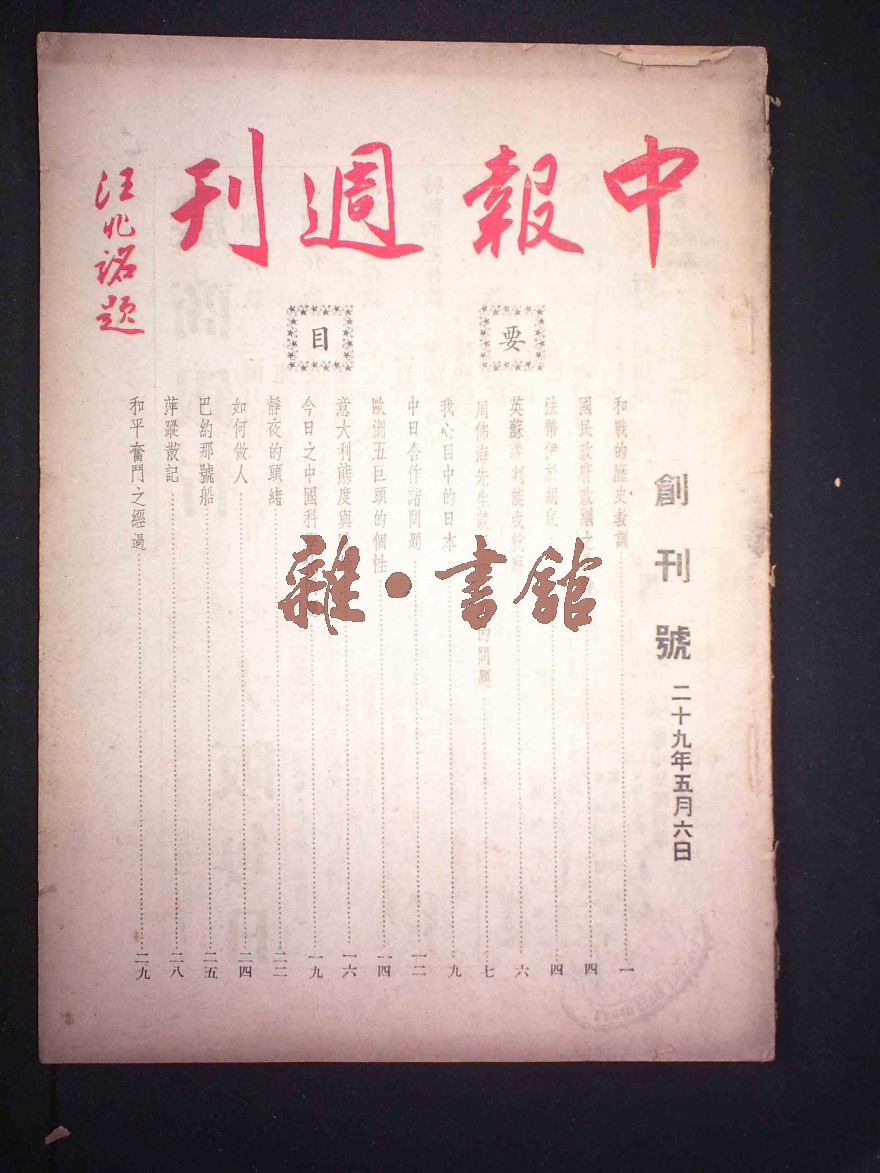 中報週刊
汪兆銘題
要目
創刊號
二十九年五月六日
和戰的歷史教訓……一
國民政府政綱之……四
法幣伊於胡底……四
英蘇談判能成……六
周佛海先生談……的問題……七
我心目中的日本……九
中日合作諸問題……一二
歐洲五巨頭的個性……一四
意大利態度與……一六
今日之中國科……一九
靜夜的頭緒……二二
如何做人……二四
巴約那號船……二五
萍蹤散記……二八
和平奮鬥之經過……二九
雜·書館